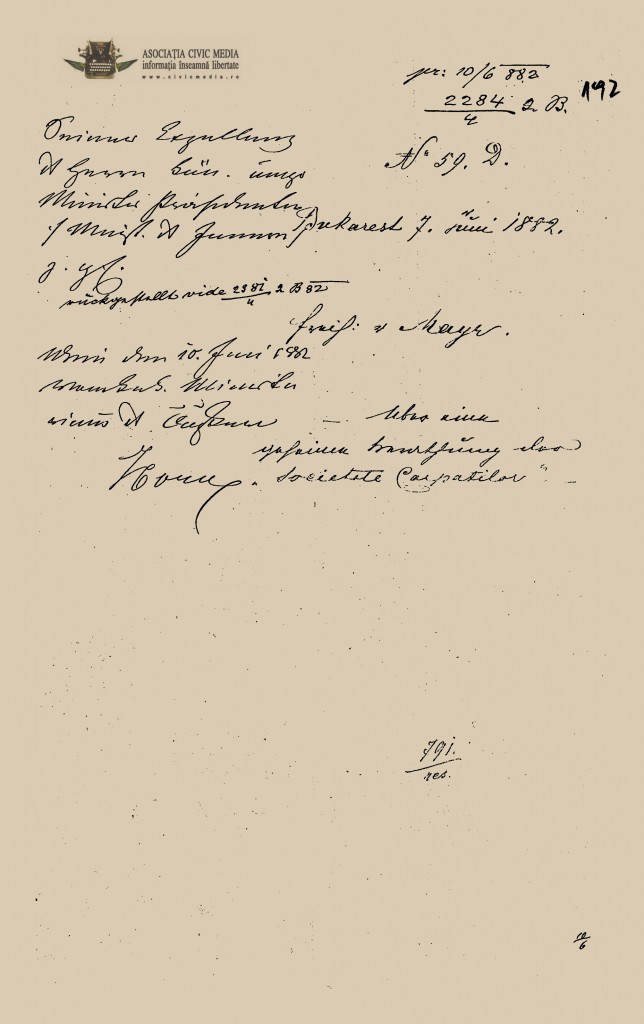 ASOCIAŢIA CIVIC MEDIA
informaţia înseamnă libertate
www.civicmedia.ro
pr: 10/6 882
2284/4 2 B.
192
Seiner Exzellenz
d Herrn kön. ung.
Minister Präsidenten
No 59. D.
Bukarest 7. Juni 1882.
rückgestellt vide 2281/4 2 B 82
Freih: v Mayr.
Wien den 10. Juni 1882
Minister
d Äußern
— Über eine
geheime Sitzung der
„Societate Carpatilor" —
791.
res.
10/6